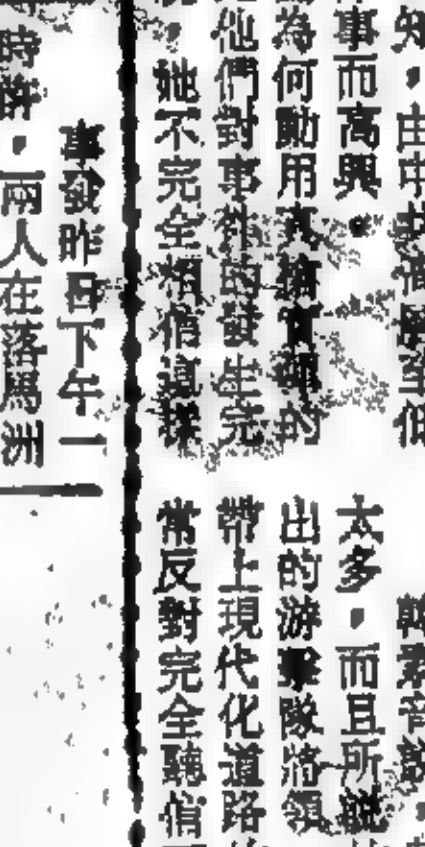 知，由中共
事而高興。
為何動用真槍實彈的
他們對事件的發生完
她不完全相信這樣
太多，而且所說
出的游擊隊將領
帶上現代化道路
常反對完全聽信
事發昨日下午一
時許，兩人在落馬洲